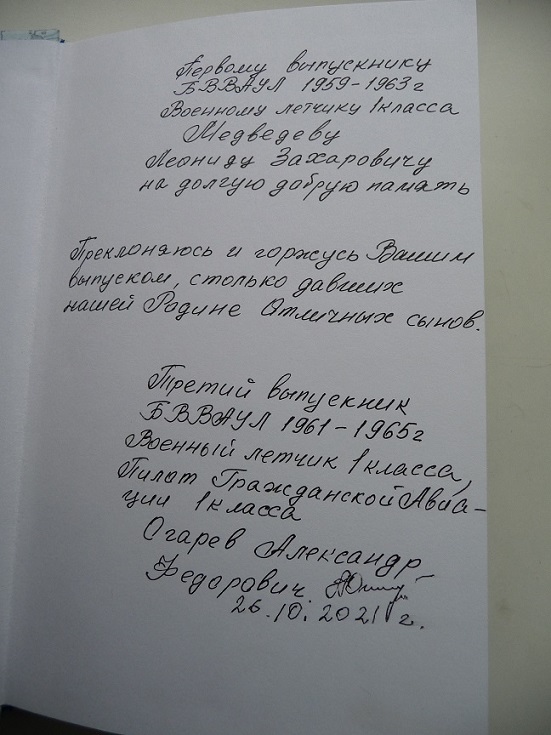 Первому выпускнику
БВВАУЛ 1959-1963г
Военному летчику 1класса
Медведеву
Леониду Захаровичу
на долгую добрую память
Преклоняюсь и горжусь Вашим
выпуском, столько давших
нашей Родине Отличных сынов.
Третий выпускник
БВВАУЛ 1961-1965г
Военный летчик 1класса,
Пилот Гражданской Авиа-
ции 1класса
Огарев Александр
Федорович
26.10.2021г.